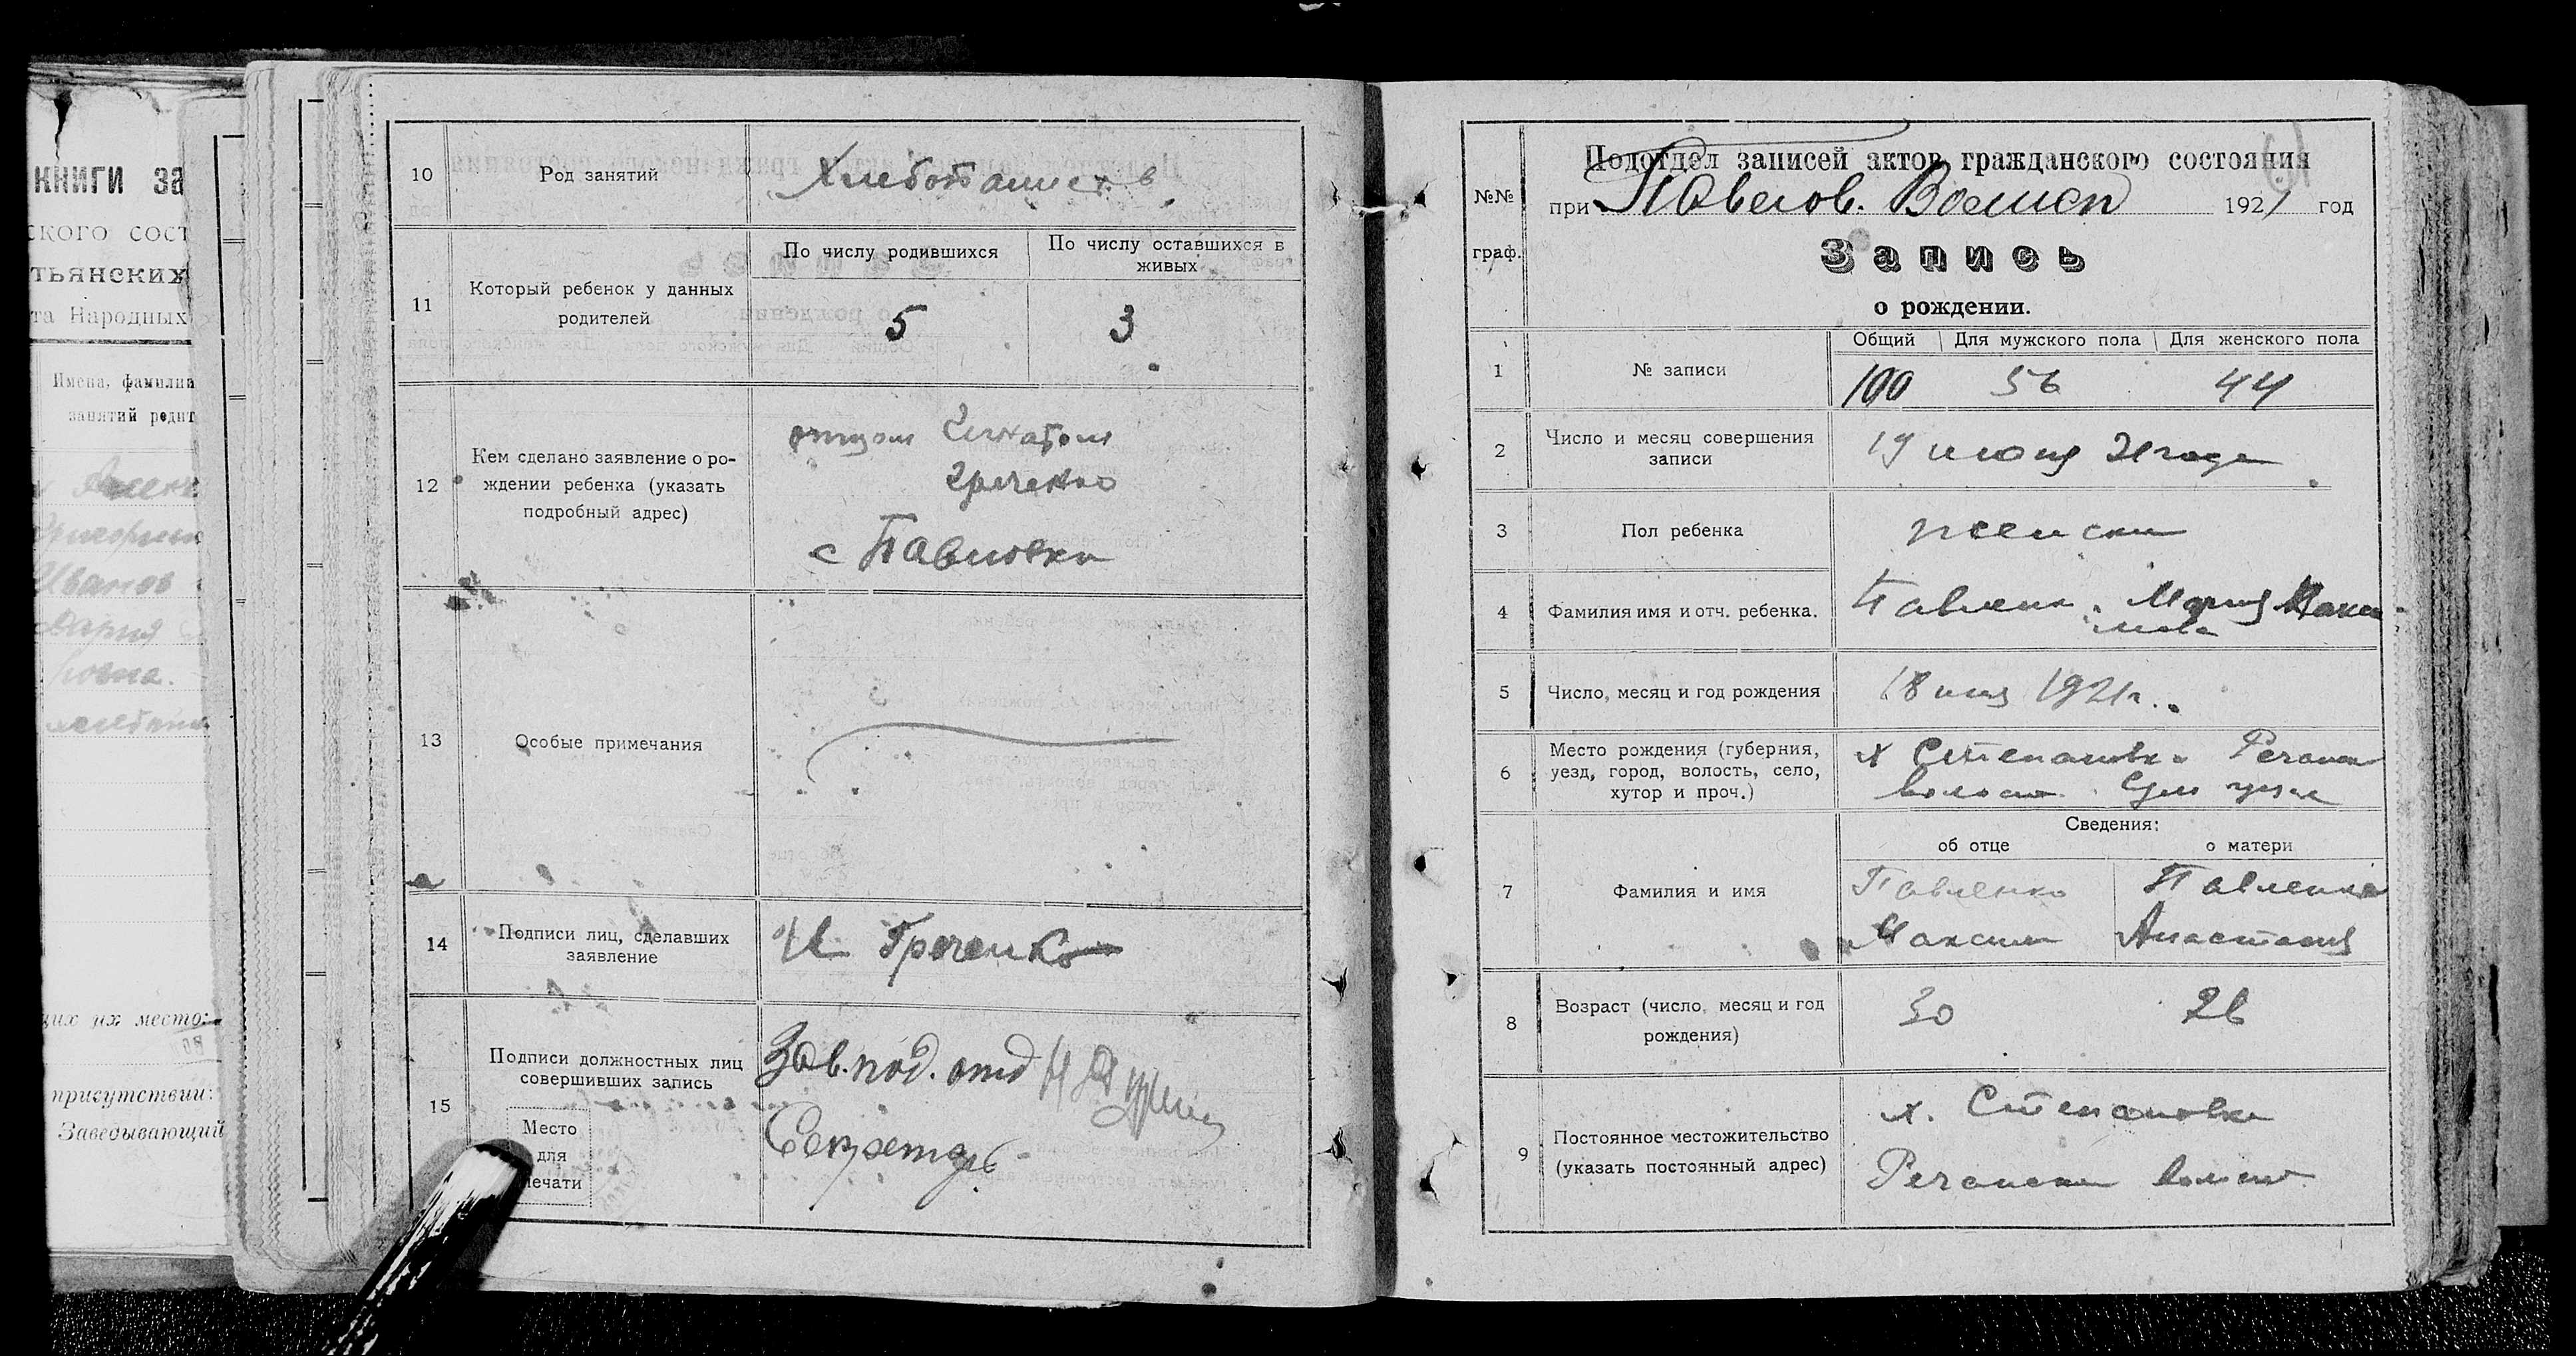 КНИГИ ЗА
ского сост
тьянских
та Народных
Имена, фамилии
занятий родит
Иванов
их их место:
присутствии:
Заведывающий
10 Род занятий Хлебопашест в
11 Который ребенок у данных родителей
По числу родившихся По числу оставшихся в живых
5 3
12 Кем сделано заявление о ро-
ждении ребенка (указать
подробный адрес)
отцом Игнатом
Греченко
с Павловки
13 Особые примечания
14 Подписи лиц, сделавших
заявление
И Греченко
15 Подписи должностных лиц
совершивших запись
Зав. под. отд
Секретарь
Место
для
печати
Подотдел записей актов гражданского состояния
№№ при Павлов. Волисп 1921 год
граф.
Запись
о рождении.
Общий Для мужского пола Для женского пола
1 № записи 100 56 44
2 Число и месяц совершения
записи
19 июня 21 года
3 Пол ребенка женски
4 Фамилия имя и отч. ребенка. Павленк. Мария Макси-
мова
5 Число, месяц и год рождения 18 июня 1921 г.
6 Место рождения (губерния,
уезд, город, волость, село,
хутор и проч.)
х Степановка Речанск
волост Сум уезд
Сведения:
об отце о матери
7 Фамилия и имя
Павленко Павленко
Максим Анастасия
8 Возраст (число, месяц и год
рождения)
30 26
9 Постоянное местожительство
(указать постоянный адрес)
х. Степановка
Речански волост